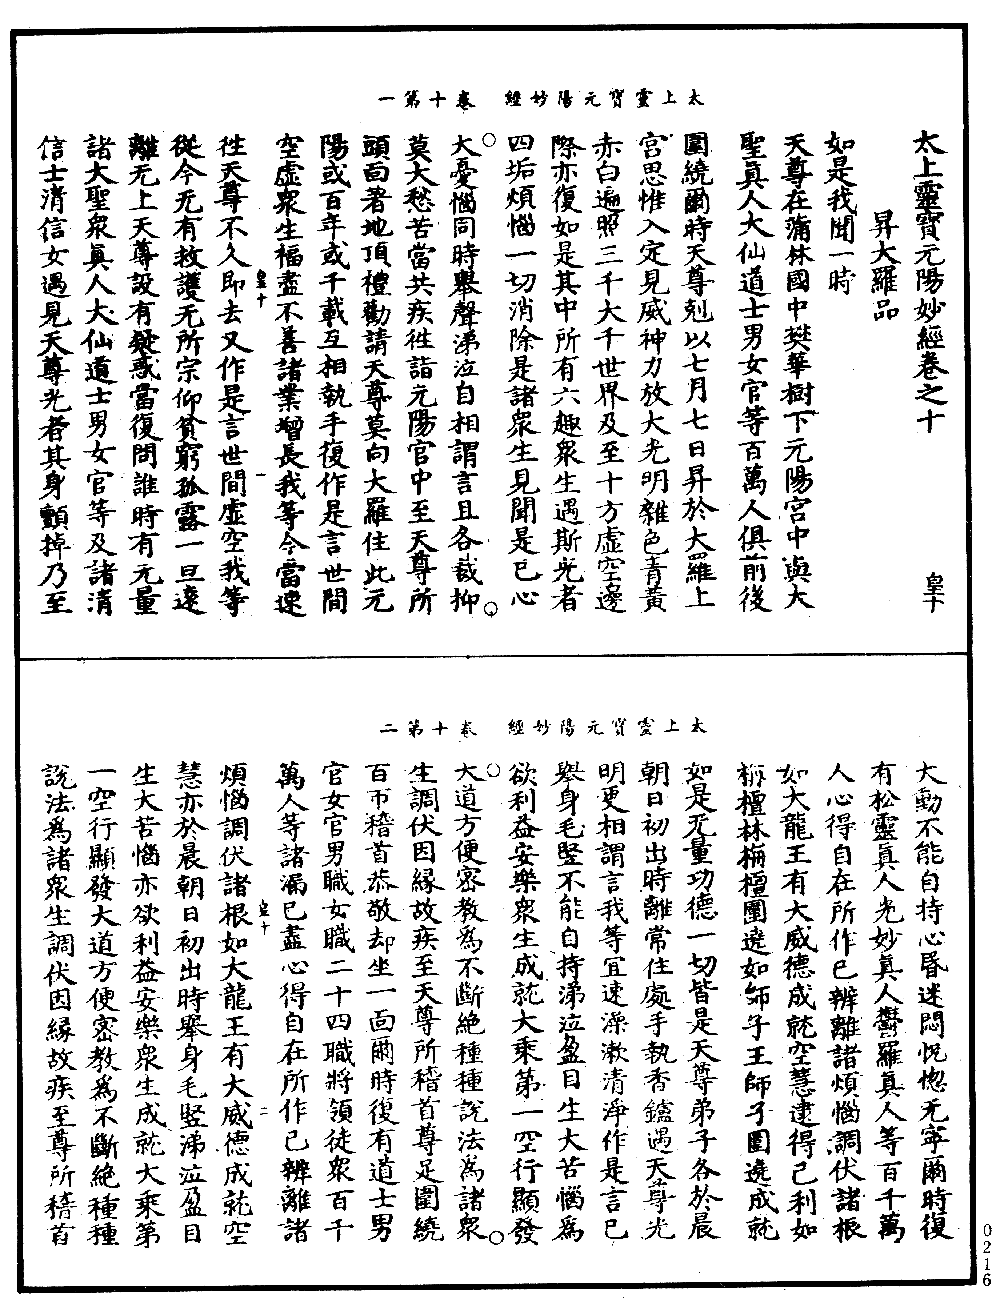 太上靈寶元陽妙經　卷十第一
太上靈寶元陽妙經卷之十　皇十
昇大羅品
如是我聞一時
天尊在蒲林國中㷼華樹下元陽宮中與大
聖真人大仙道士男女官等百萬人俱前後
圍繞爾時天尊剋以七月七日昇於大羅上
宮思惟入定見威神力放大光明雜色青黃
赤白遍照三千大千世界及至十方虛空邊
際亦復如是其中所有六趣眾生遇斯光者
四垢煩惱一切消除是諸眾生見聞是已心
大憂惱同時舉聲涕泣自相謂言且各裁抑
莫大愁苦當共疾往詣元陽官中至天尊所
頭面著地頂禮勸請天尊莫向大羅住此元
陽或百年或千載互相執手復作是言世間
空虛眾生福盡不善諸業增長我等今當速
皇十　一
往天尊不久即去又作是言世間虛空我等
從今无有救護无所宗仰貧窮孤露一旦遠
離无上天尊設有疑惑當復問誰時有无量
諸大聖眾真人大仙道士男女官等及諸清
信士清信女遇見天尊光者其身顫掉乃至
太上靈寶元陽妙經　卷十第二
大動不能自持心昏迷悶怳惚无寧爾時復
有松靈真人光妙真人鬱羅真人等百千萬
人心得自在所作已辨離諸煩惱調伏諸根
如大龍王有大威德成就空慧逮得己利如
栴檀林栴檀圍遶如師子王師子圍遶成就
如是无量功德一切皆是天尊弟子各於晨
朝日初出時離常住處手執香鑪遇天尊光
明更相謂言我等宜速澡漱清淨作是言已
舉身毛竪不能自持涕泣盈目生大苦惱為
欲利益安樂眾生成就大乘第一空行顯發
大道方便密教為不斷絕種種說法為諸眾
生調伏因緣故疾至天尊所稽首尊足圍繞
百帀稽首恭敬却坐一面爾時復有道士男
官女官男職女職二十四職將領徒眾百千
萬人等諸漏已盡心得自在所作已辨離諸
皇十　二
煩惱調伏諸根如大龍王有大威德成就空
慧亦於晨朝日初出時舉身毛竪涕泣盈目
生大苦惱亦欲利益安樂眾生成就大乘第
一空行顯發大道方便密教為不斷絕種種
說法為諸眾生調伏因緣故疾至尊所稽首
0216